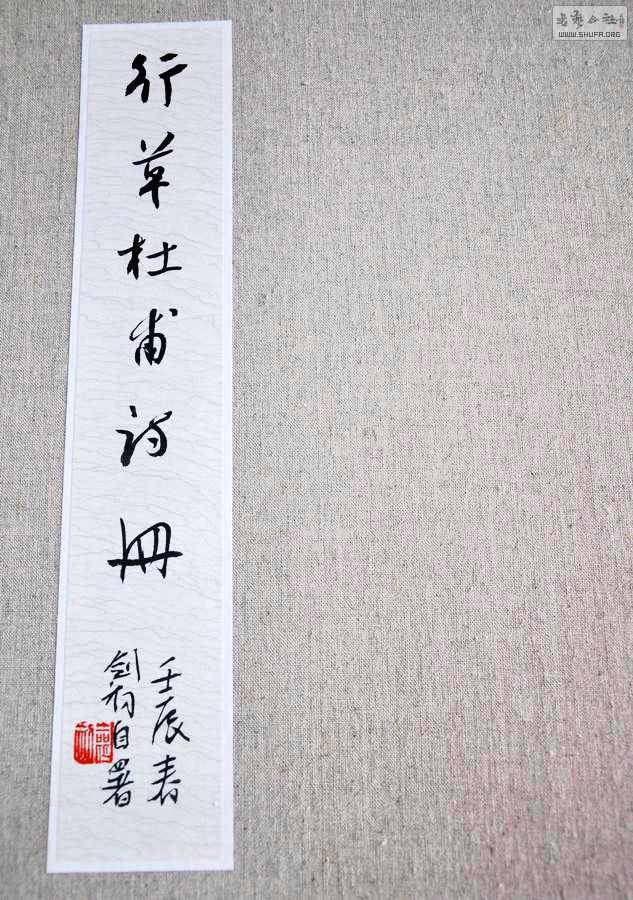 行草杜甫诗册
壬辰春
剑初自署
书艺公社
WWW.SHUFA.ORG